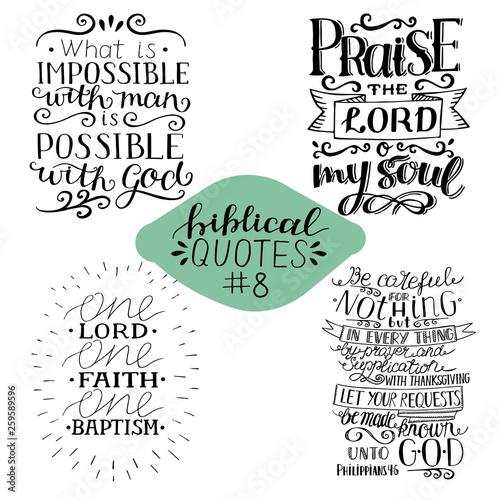 What is
IMPOSSIBLE
with man
is
POSSIBLE
with God
PRAISE
THE
LORD
O
my soul
biblical
QUOTES
#8
One
LORD
One
FAITH
One
BAPTISM
Be careful
FOR
NOTHING
but
IN EVERY THING
by prayer and
supplication
WITH THANKSGIVING
LET YOUR REQUESTS
be made known
UNTO GOD
PHILIPPIANS 4:6
Adobe Stock | #259589596